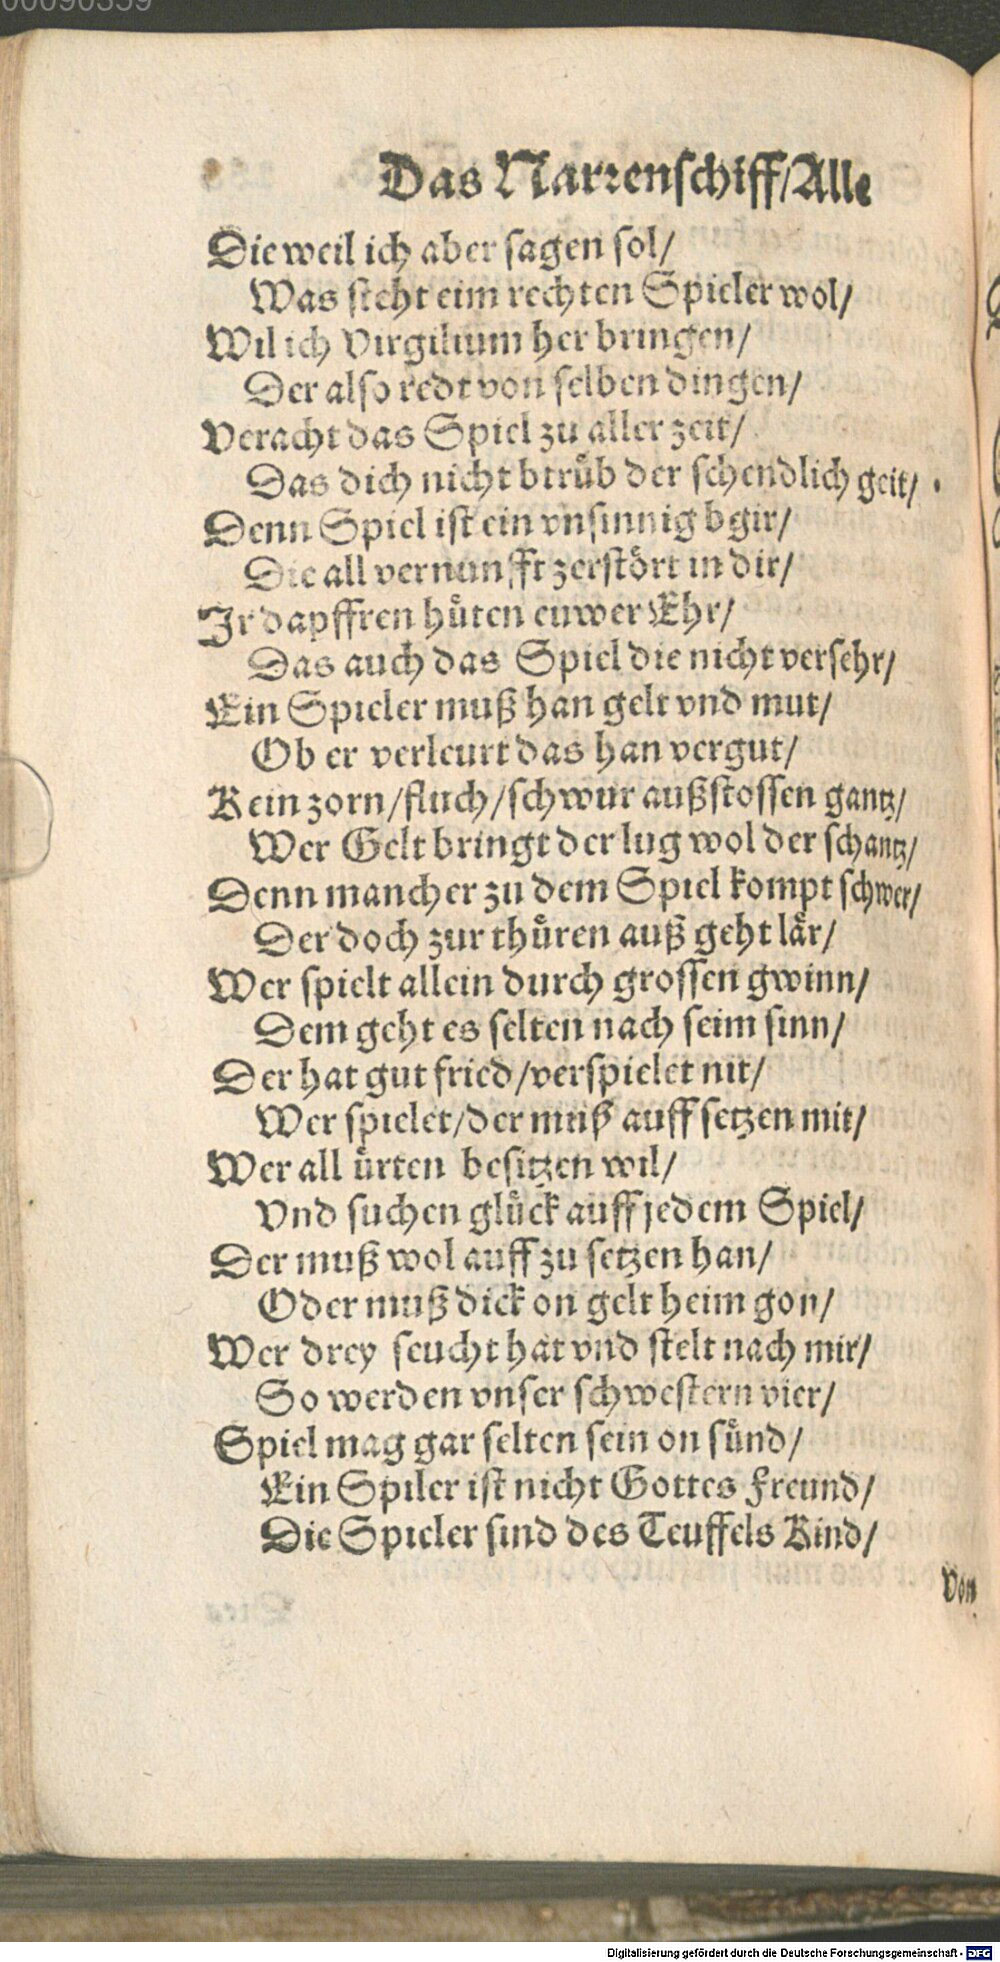 00090359
Das Narrenschiff/Alle
Die weil ich aber sagen sol/
Was steht eim rechten Spieler wol/
Wil ich Virgilium her bringen/
Der also redt von selben dingen/
Veracht das Spiel zu aller zeit/
Das dich nicht btrüb der schendlich geit/
Denn Spiel ist ein vnsinnig bgir/
Die all vernunfft zerstört in dir/
Ir dapffren hüten euwer Ehr/
Das auch das Spiel die nicht versehr/
Ein Spieler muß han gelt vnd mut/
Ob er verleurt das han vergut/
Kein zorn/fluch/schwur außstossen gantz/
Wer Gelt bringt der lug wol der schantz/
Denn mancher zu dem Spiel kompt schwer/
Der doch zur thüren auß geht lär/
Wer spielt allein durch grossen gwinn/
Dem geht es selten nach seim sinn/
Der hat gut fried/verspielet nit/
Wer spielet/der muß auff setzen mit/
Wer all ürten besitzen wil/
Vnd suchen glück auff jedem Spiel/
Der muß wol auff zu setzen han/
Oder muß dick on gelt heim gon/
Wer drey seucht hat vnd stelt nach mir/
So werden vnser schwestern vier/
Spiel mag gar selten sein on sünd/
Ein Spiler ist nicht Gottes Freund/
Die Spieler sind des Teuffels Kind/
Von
Digitalisierung gefördert durch die Deutsche Forschungsgemeinschaft - DFG